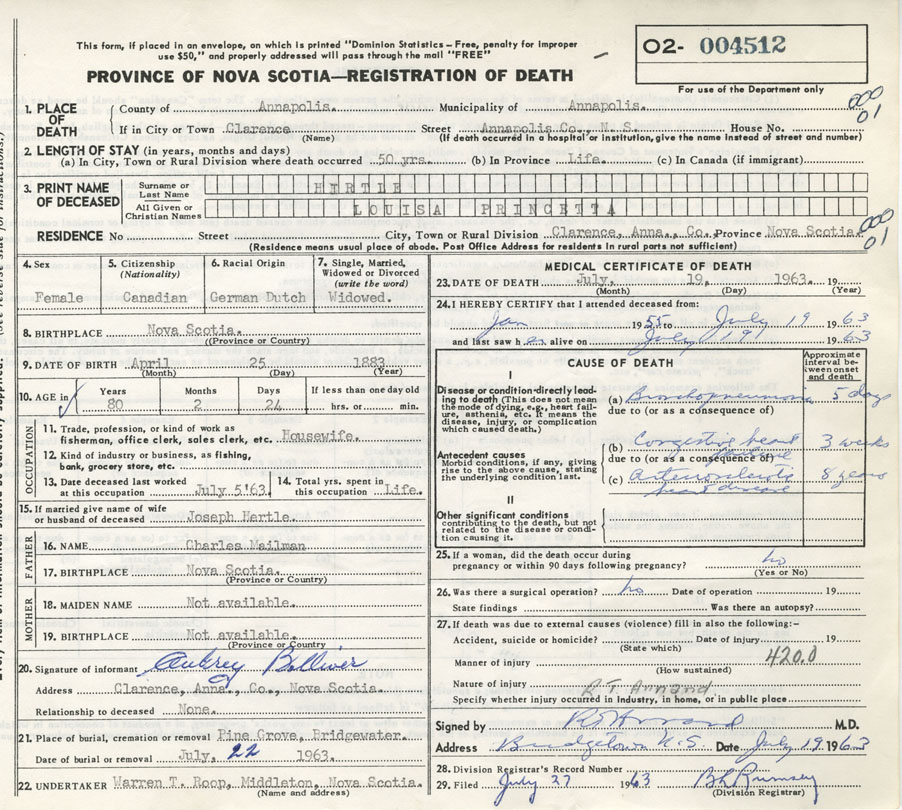 This form, if placed in an envelope, on which is printed "Dominion Statistics – Free, penalty for improper
use $50," and properly addressed will pass through the mail "FREE"
O2- 004512
For use of the Department only
PROVINCE OF NOVA SCOTIA—REGISTRATION OF DEATH
000
01
1. PLACE OF DEATH County of Annapolis. Municipality of Annapolis.
If in City or Town Clarence Street Annapolis Co., N. S. House No.
(Name) (If death occurred in a hospital or institution, give the name instead of street and number)
2. LENGTH OF STAY (in years, months and days)
(a) In City, Town or Rural Division where death occurred 50 yrs. (b) In Province Life. (c) In Canada (if immigrant)
3. PRINT NAME OF DECEASED
Surname or Last Name HIRTLE
All Given or Christian Names LOUISA PRINCETTA
000
01
RESIDENCE No Street City, Town or Rural Division Clarence, Anna., Co., Province Nova Scotia.
(Residence means usual place of abode. Post Office Address for residents in rural parts not sufficient)
4. Sex
Female
5. Citizenship
(Nationality)
Canadian
6. Racial Origin
German Dutch
7. Single, Married,
Widowed or Divorced
(write the word)
Widowed.
8. BIRTHPLACE Nova Scotia.
(Province or Country)
9. DATE OF BIRTH April 25 1883
(Month) (Day) (Year)
10. AGE in Years Months Days If less than one day old
80 2 24 hrs. or min.
OCCUPATION
11. Trade, profession, or kind of work as
fisherman, office clerk, sales clerk, etc. Housewife.
12. Kind of industry or business, as fishing,
bank, grocery store, etc.
13. Date deceased last worked
at this occupation July 5'63.
14. Total yrs. spent in
this occupation Life.
15. If married give name of wife
or husband of deceased Joseph Hertle.
FATHER
16. NAME Charles Mailman
17. BIRTHPLACE Nova Scotia.
(Province or Country)
MOTHER
18. MAIDEN NAME Not available.
19. BIRTHPLACE Not available.
(Province or Country
20. Signature of informant Aubrey Bolliver
Address Clarence, Anna., Co., Nova Scotia.
Relationship to deceased None.
21. Place of burial, cremation or removal Pine Grove, Bridgewater.
Date of burial or removal July, 22 1963.
22. UNDERTAKER Warren T. Roop, Middleton, Nova Scotia.
(Name and address)
MEDICAL CERTIFICATE OF DEATH
23. DATE OF DEATH July, 19, 1963. 19
(Month) (Day) (Year)
24. I HEREBY CERTIFY that I attended deceased from:
Jan 1955 to July 19 1963
and last saw h er alive on July 19 1963
CAUSE OF DEATH
Approximate interval between onset and death
I
Disease or condition directly leading to death (This does not
the mode of dying, e.g., heart failure, asthenia, etc. It means the
disease, injury, or complication
which caused death.)
(a) Bronchopneumonia 5 days
due to (or as a consequence of)
Antecedent causes
Morbid conditions, if any, giving
rise to the above cause, stating
the underlying condition last.
(b) Congestive heart failure 3 weeks
due to (or as a consequence of)
(c) Arteriosclerotic heart disease 8 years
II
Other significant conditions
contributing to the death, but not
related to the disease or condition causing it.
25. If a woman, did the death occur during
pregnancy or within 90 days following pregnancy? no
(Yes or No)
26. Was there a surgical operation? no Date of operation 19
State findings Was there an autopsy?
27. If death was due to external causes (violence) fill in also the following:–
Accident, suicide or homicide? Date of injury 19
(State which)
Manner of injury 420.0
(How sustained)
Nature of injury
R T. Annand
Specify whether injury occurred in industry, in home, or in public place
Signed by M.D.
Address Bridgetown N.S. Date July 19 1963
28. Division Registrar's Record Number
29. Filed July 27 1963
(Division Registrar)